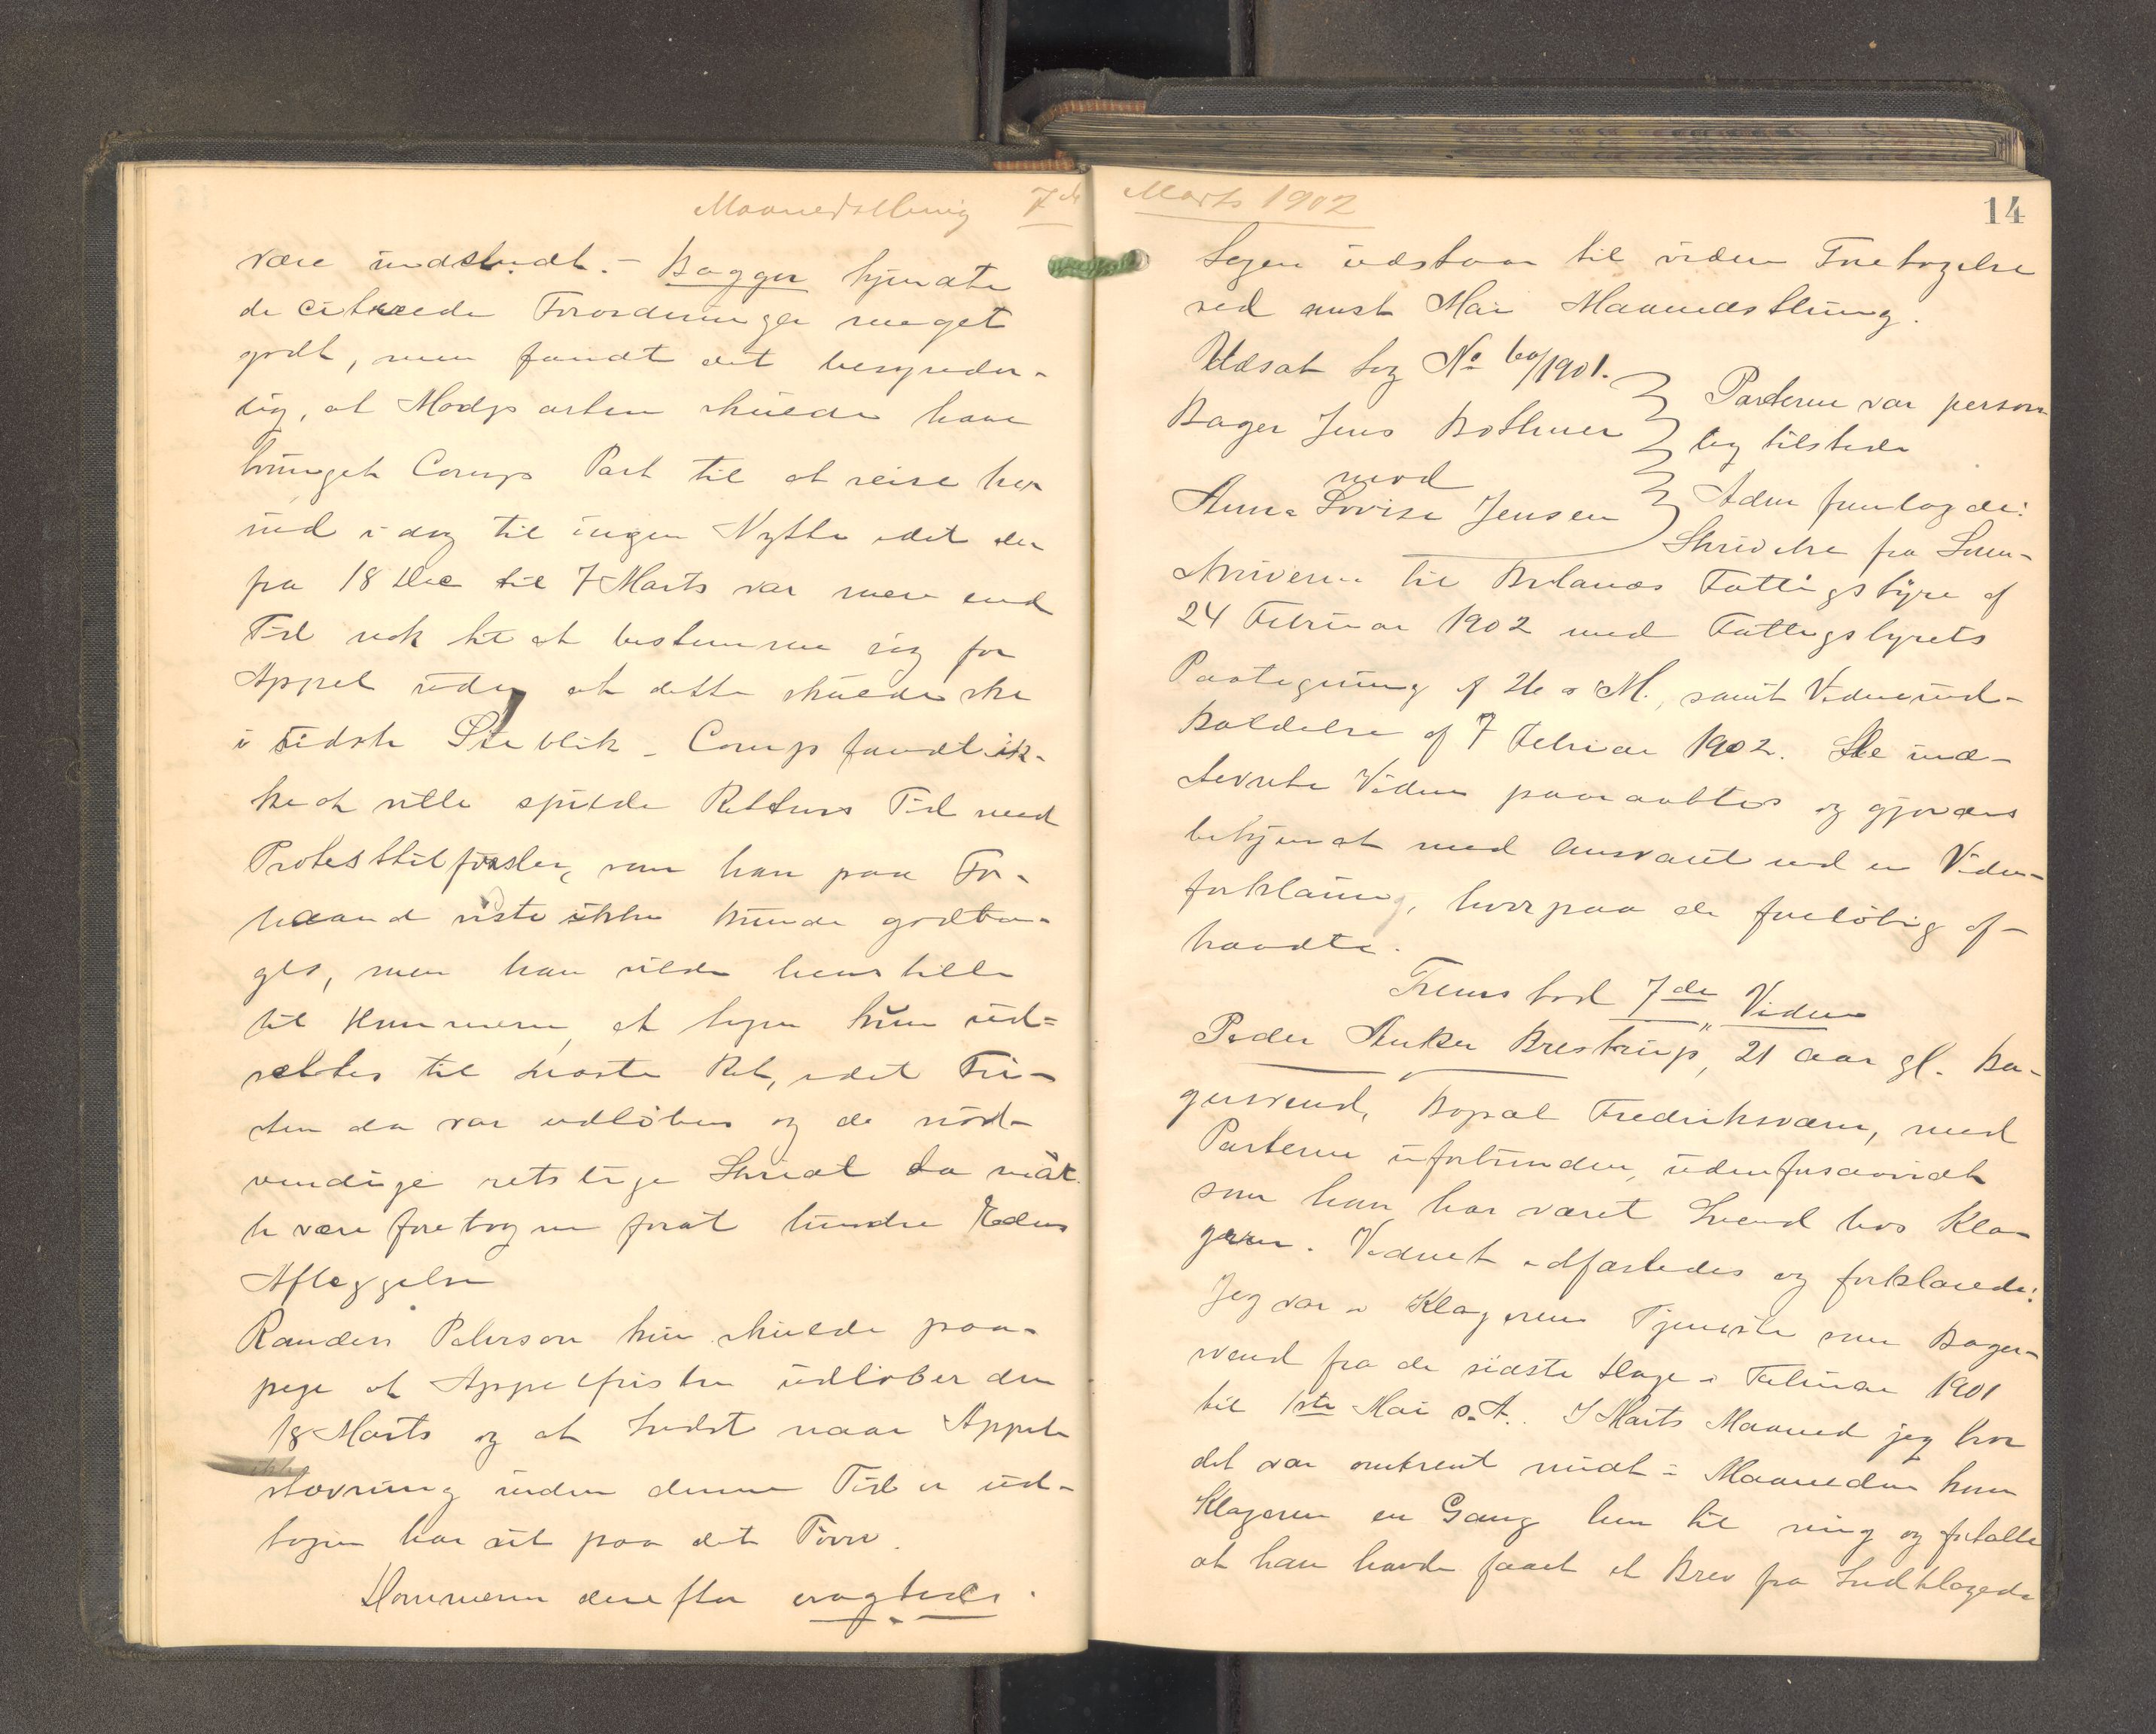 Maanedsthing 7de
være indstudt. - Bagger kjendte
de citerede Forordninger meget
godt, men fandt det besynder-
lig, at Modparten skulde have
tvunget Comp Part til at reise her
ind i dag til ingen Nytte idet der
fra 18 Dec til 7 Marts var mere end
Tid nok til at bestemme sig for
Appel uden at dette skulde ske
i sidste Øieblik - Comp fandt ik-
ke at ville spilde Rettens Tid med
Protesttilførsler, som han paa For-
haand viste ikke kunde godta-
ges, men han vilde henstille
til Dommeren, at Sagen kun ud-
sættes til næste Ret, idet Fri-
sten da var udløben og de nød-
vendige retslige Skridt da maat
te være foretagne forat hindre Edens
Aflæggelse
Randers Peterson kun skulde paa-
pege at Appelfristen udløber den
18 Marts og at Indst naar Appel
ikke
stævning inden denne Tid er ud-
tagen har sit paa det Tørre.
Dommeren derefter eragtede:
Marts 1902
14
Sagen udstaar til videre Foretagelse
ved anst Mai Maanedsthing.
Udsat Sag No 60/1901.
Bager Jens Bothner
mod
Anna Lovise Jensen
Parterne var person
lig tilstede
Adm fremlagde:
Skrivelse fra Soren-
skriveren til Brlanæs Fattigstyre af
24 Februar 1902 med Fattigstyrets
Paategning af 26 s M., samt Vidneind-
kaldelse af 7 Februar 1902. De ind-
stevnte Vidner paaraabtes og gjordes
bekjendt med Ansvaret ved en Vidne-
forklaring, hvorpaa de foreløbig af-
traadte.
Fremstod 7de Vidne
Peder Anker Brestrup, 21 Aar gl. Ba-
gersvend, Bopæl Fredriksværn, med
Parterne uforbunden, udenforsaavidt
som han har været Svend hos Kla-
geren. Vidnet edfæstedes og forklarede:
Jeg var i Klagerens Tjeneste som Bager-
svend fra de sidste Dage i Februar 1901
til 1ste Mai s. A. I Marts Maaned jeg tror
det var omtrent midt i Maaneden kom
Klageren en Gang hen til mig og fortalte
at han havde faaet et Brev fra Indklagede